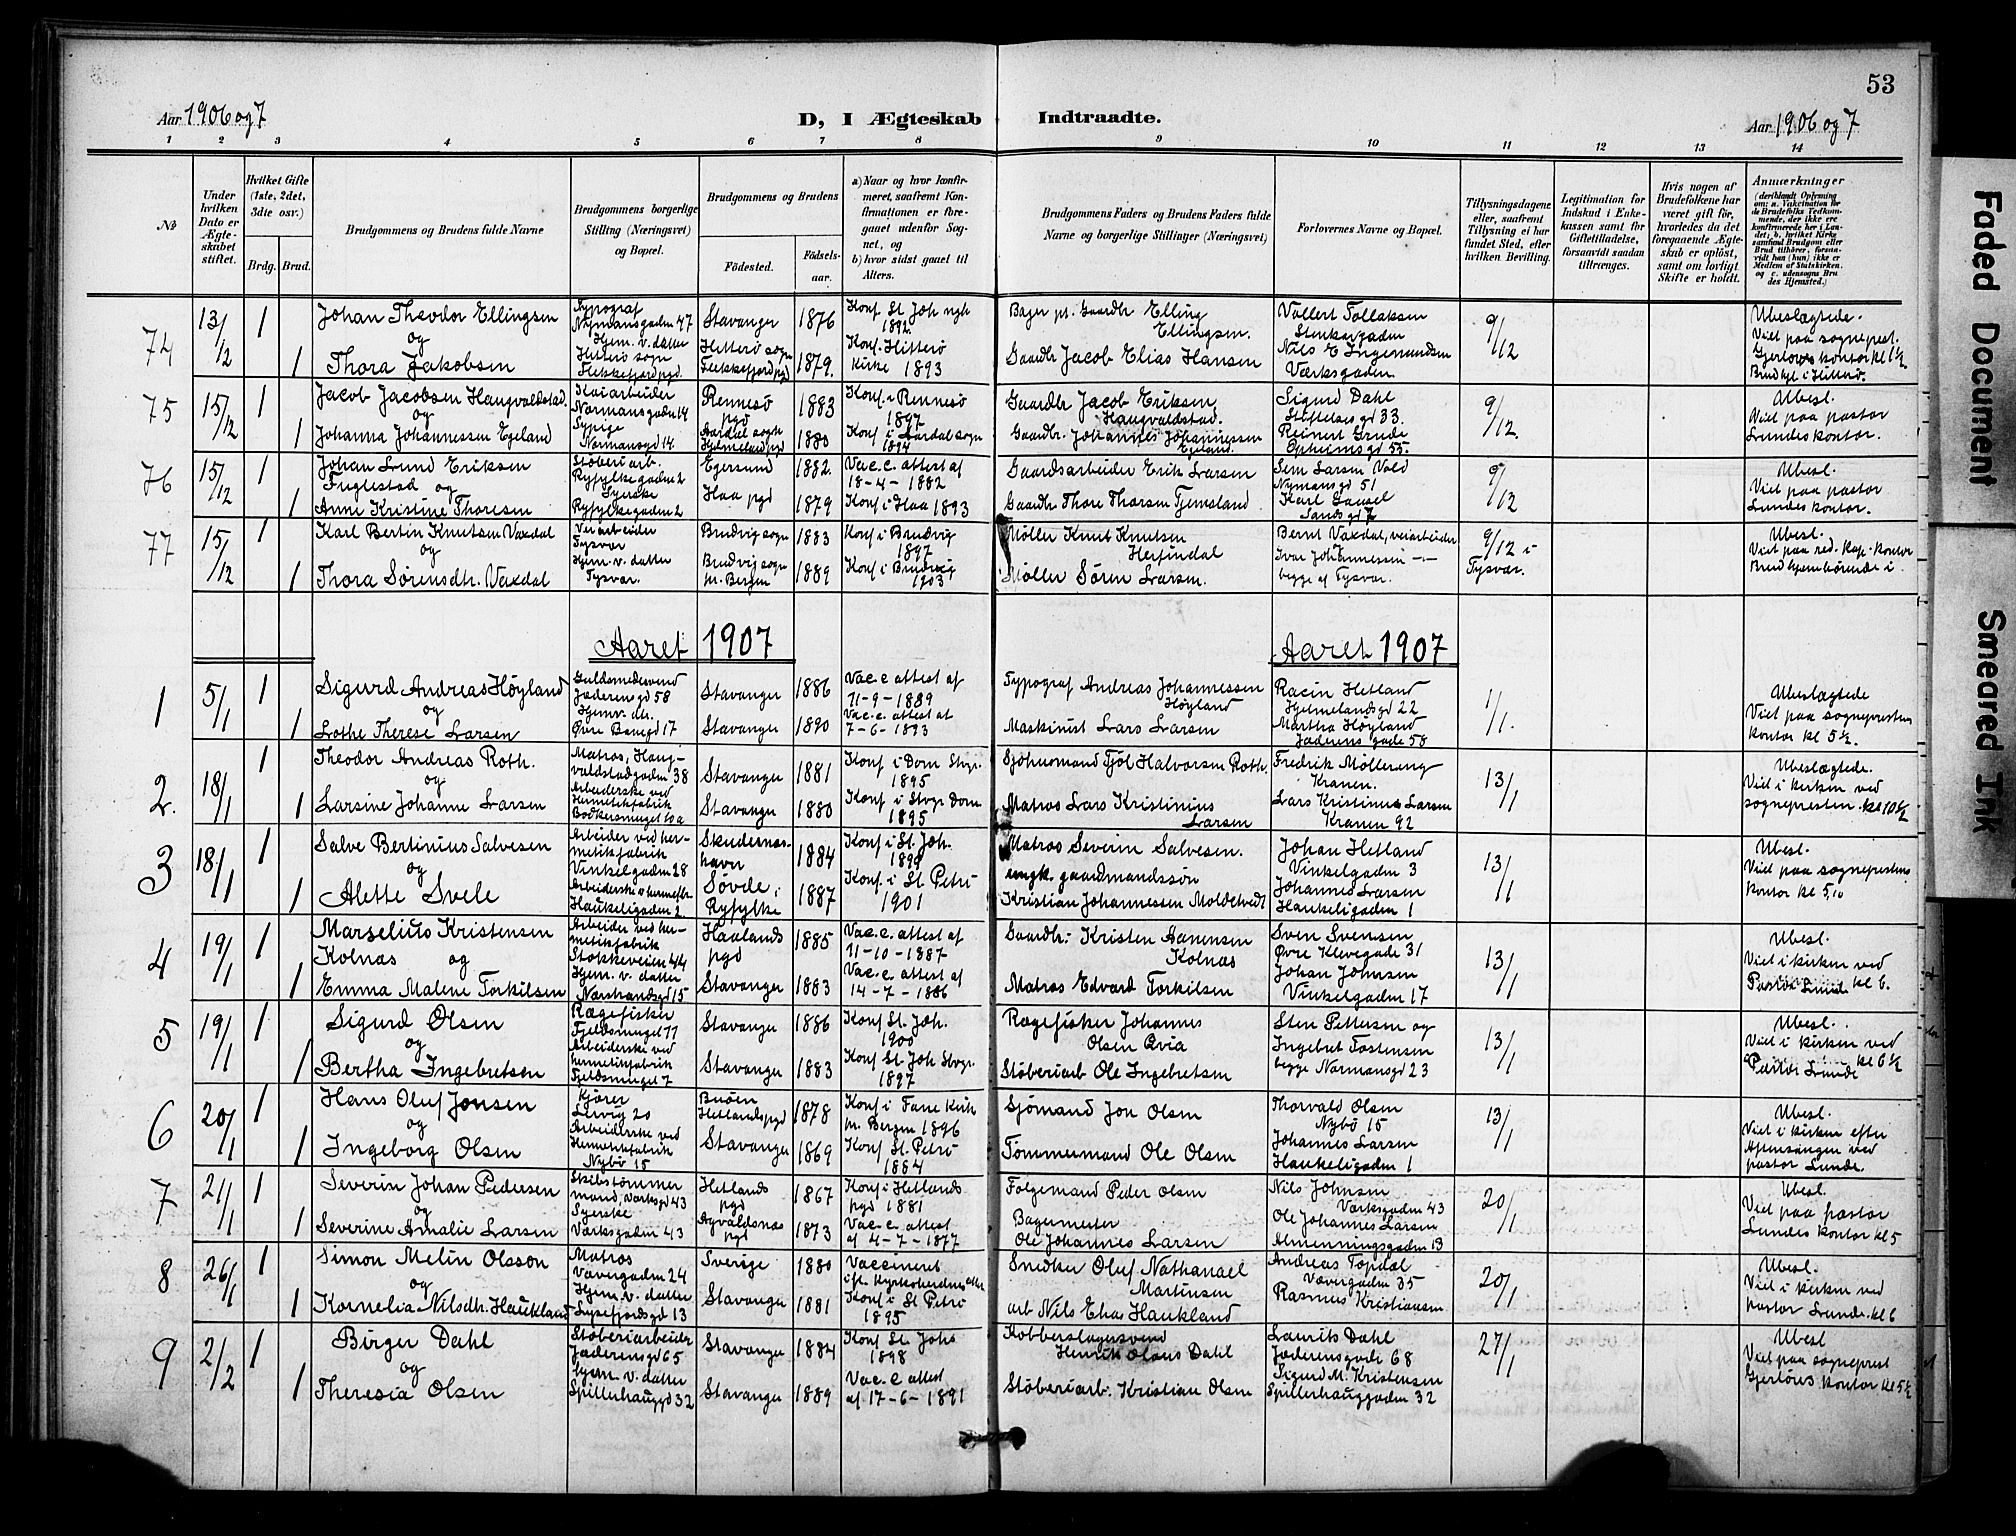 53
Aar 1906 og 7
D, I Ægteskab Indtraadte.
Aar 1906 og 7
1 2 3 4 5 6 7 8 9 10 11 12 13 14
№
Under hvilken Dato er Ægteskabet stiftet.
Hvilket Gifte (1ste, 2det, 3die osv.)
Brdg. Brud.
Brudgommens og Brudens fulde Navne
Brudgommens borgerlige Stilling (Næringsvei) og Bopæl.
Brudgommens og Brudens
Fødested. Fødselsaar.
a) Naar og hvor konfirmeret, saafremt Konfirmationen er foregaaet udenfor Sognet, og
b) hvor sidst gaaet til Alters.
Brudgommens Faders og Brudens Faders fulde Navne og borgerlige Stillinger (Næringsvei)
Forlovernes Navne og Bopæl.
Tillysningsdagene eller, saafremt Tillysning ei har fundet Sted, efter hvilken Bevilling.
Legitimation for Indskud i Enkekassen samt for Giftetilladelse, forsaavidt saadan tiltrænges.
Hvis nogen af Brudefolkene har været gift før, hvorledes da det foregaaende Ægteskab er opløst, samt om lovligt Skifte er holdt.
Anmærkninger
74 13/12 1 Johan Theodor Ellingsen Typograf Nymansgaden 47 Stavanger 1876 Konf St Joh 1892 Ellingsen. Vollert Tollaksen 9/12 Ubeslægtede.
og
1 Thora Jakobsen Hjem. v. datter Hitterø sogn Flekkefjord pgd. Hitterø sogn Flekkefjord pgd 1879. Konf. Hitterø Kirke 1893 Gaardbr Jacob Elias Hansen Nils E Ingemundsen Værksgaden. Viet paa sogneprest. Gjerløvs kontor kl 1½
75 15/12 1 Jacob Jacobsen Haugvaldstad. Kaiarbeider Normansgaden 14 Rennesø pgd 1883 Konf. i Rennesø 1897 Gaardbr Jacob Eriksen Haugvaldstad. Sigurd Dahl Stiftelsesgd 33. 9/12. Ubesl.
og
1 Johanna Johannessen Egeland Sypige Normansgd 14. Aardal sogn Hjelmeland pgd 1880 Konf i Aardal sogn 1894 Gaardbr. Johannes Johannessen Egeland. Reinert Grude Opheimsgd 55. Viet paa pastor Lundes kontor.
76 15/12 1 Johan Lund Eriksen Fuglestad og Støberiarb. Ryfylkegaden 2 Egersund 1882. Vac. c. attest af 18-4-1882 Gaardsarbeider Erik Larsen Sem Larsen Vold Nymansgd 51 9/12 Ubesl.
1 Anne Kristine Thoresen Syerske Ryfylkegaden 2 Haa pgd 1879 Konf i Haa 1893 Gaardbr Thore Thorsen Tjemsland Karl Gausel Sandsgd 7 Viet paa pastor Lundes kontor.
77 15/12 1 Karl Bertin Knutsen Vaxdal Veiarbeider Tysvær Bruvig sogn 1883 Konf i Bruvig 1897 Møller Knut Knutsen Herfindal Bernt Vaxdal, veiarbeider 9/12 i Tysvær. Ubesl.
og
1 Thora Sørensdtr. Vaxdal Hjem. v. datter Tysvær. Bruvig sogn n. Bergen 1889 Konf i Bruvig 1903 Møller Søren Larsen. Ivar Johannessen begge af Tysvær. Viet paa red. kap. kontor
Aaret 1907 Aaret 1907
1 5/1 1 Sigurd Andreas Høyland Guldsmedsvend Jæderensgd 58 Stavanger 1886 Vac. c attest af 11-9-1889 Typograf Andreas Johannessen Høyland Racin Hetland Hjelmelandsgd 22 1/1. Ubeslægtede
og
1 Lothe Therese Larsen Hjemv. dtr. Øvre Banegd 17 Stavanger 1890 Vac. c. attest af 7-6-1893 Maskinist Lars Larsen Martha Høyland Jæderensgade 58 Viet paa sogneprestens kontor kl 5½.
2. 18/1 1 Theodor Andreas Roth. Matros, Haugvaldstadgaden 38 Stavanger 1881 Konf i Dom Stvgr. 1895 Sjøhusmand Tjøl Halvorsen Roth. Fredrik Møllerup Kranen. 13/1 Ubeslægtede.
og
1 Larsine Johanne Larsen Arbeiderske ved Hermetikfabrik Bødkersmuget 10 a Stavanger 1880 Konf i Stvgr Dom 1895 Matros Lars Kristinius Larsen Lars Kristinius Larsen Kranen 92 Viet i kirken ved sognepresten. kl 10½
3 18/1 1 Salve Bertinius Salvesen Arbeider ved hermetikfabrik Vinkelgaden 28 Skudesneshavn 1884 Konf i St. Joh. 1899 Matros Severin Salvesen. Johan Hetland Vinkelgaden 3 13/1 Ubesl.
og
1 Alette Svele Arbeiderske v hermetfbr. Haukeligaden 2 Søvde i Ryfylke 1887 Konf. i St. Petri 1901 ungk. gaardmandssøn Kristian Johannessen Moldetvedt Johannes Larsen Haukeligaden 1 Viet paa sogneprestens kontor kl 5,10
4 19/1 1 Marselius Kristensen Kolnæs og Arbeider ved hermetikfabrik Stokkeveien 44 Haalands pgd 1885 Vac. c. attest af 11-10-1887 Gaardbr. Kristen Aanensen Kolnæs Sven Svensen Øvre Klevegade 31 13/1 Ubesl.
1 Emma Malene Torkilsen Hjem. v. datter Nærstrandsgd 15 Stavanger 1883 Vac. c. attest af 14-7-1886 Matros Edvard Torkilsen Johan Johnsen Vinkelgaden 17 Viet i kirken ved Pastor Lunde kl 6.
5 19/1 1 Sigurd Olsen Røgefisker Fjeldsmuget 11 Stavanger 1886 Konf St. Joh. 1900 Røgefisker Johannes Olsen Qvia Sten Pettersen og 13/1 Ubesl.
og
1 Bertha Ingebretsen Arbeiderske ved hermetikfabrik Fjeldsmuget 7 Stavanger 1883 Konf St. Joh Stvgr. 1897 Støberiarb Ole Ingebretsen Ingebret Tostensen begge Normansgd 23 Viet i kirken ved Pastor Lunde kl 6½
6 20/1 1 Hans Oluf Jonsen Kjører Lervig 20 Buøen Hetlands pgd 1878 Konf i Fane Kirk n. Bergen 1896 Sjømand Jon Olsen Thorvald Olsen Nybø 15 13/1 Ubesl.
og
1 Ingeborg Olsen Arbeiderske ved Hermetikfabrik Nybø 15 Stavanger 1869 Konf St. Petri 1884 Tømmermand Ole Olsen Johannes Larsen Haukeligaden 1 Viet i kirken efter Aftensangen ved pastor Lunde.
7 21/1 1 Severin Johan Pedersen Skibstømmermand, Værksgd 43 Hetlands pgd 1867 Konf i Hetlands pgd 1881 Følgemand Peder Olsen Nils Johnsen Værksgaden 43 20/1 Ubesl.
og
1 Severine Amalie Larsen Syerske Værksgaden 43 Avaldsnæs pgd 1873 Vac. c. attest af 4-7-1877 Bagermester Ole Johannes Larsen Ole Johannes Larsen Almenningsgaden 13 Viet paa pastor Lundes kontor kl 5
8 26/1 1 Simon Melin Olsson Matros Vævergaden 24 Sverige 1880 Vaccineret Snedker Oluf Nathanael Martinsen Andreas Topdal Vævergaden 35 20/1 Ubesl.
og
1 Kornelia Nilsdtr. Haukland Hjem. v. datter Lysefjordsgd 13 Stavanger 1881 Konf i St Petri 1895 arb Nils Elias Haukland Rasmus Kristiansen Viet i kirken ved pastor Lunde. kl 6
9 2/2 1 Birger Dahl Støberiarbeider Jæderensgd 65 Stavanger 1884 Konf St. Johs 1898 Kobberslagersvend Henrik Olaus Dahl Laurits Dahl Jæderensgade 68 27/1 Ubesl
og
1 Theresia Olsen Hjem. v. datter Spillerhauggd 32 Stavanger 1889 Vac. c attest af 17-6-1891 Støberiarb. Kristian Olsen Sigurd M. Kristensen Spillerhauggaden 32 Viet paa sogneprest Gjerløvs kontor kl 5½
Faded Document
Smeared Ink